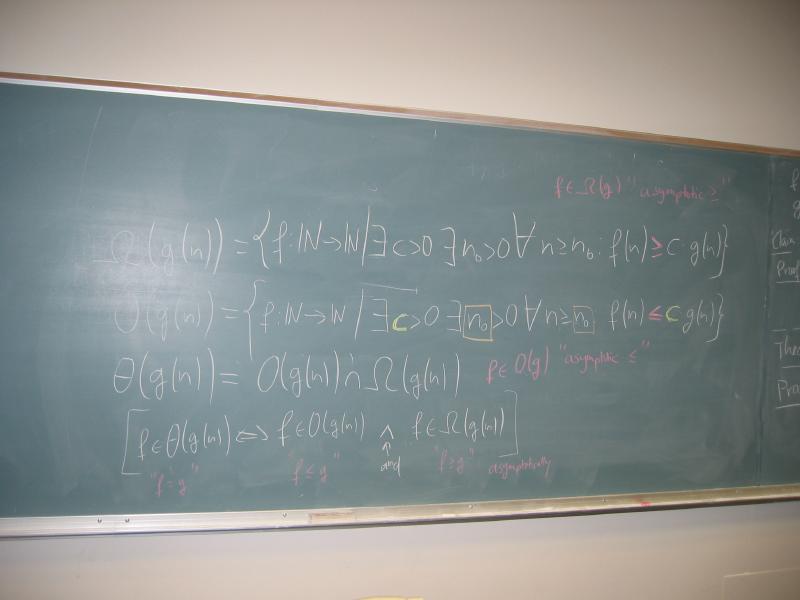 f ∈ Ω(g) "asymptotic ≥"
Ω(g(n)) = {f: ℕ → ℕ | ∃ c > 0 ∃ n₀ > 0 ∀ n ≥ n₀ : f(n) ≥ c · g(n)}
O(g(n)) = {f: ℕ → ℕ | ∃ c > 0 ∃ n₀ > 0 ∀ n ≥ n₀ f(n) ≤ c g(n)}
θ(g(n)) = O(g(n)) ∩ Ω(g(n))
f ∈ O(g) "asymptotic ≤"
[f ∈ θ(g(n)) ⇔ f ∈ O(g(n)) ∧ f ∈ Ω(g(n))]
"f = g" "f ≤ g" ↑ and "f ≥ g" asymptotically
f
g
Claim
Proof
The
Pro